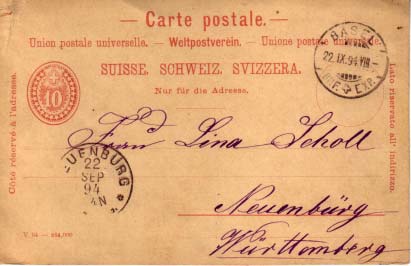 — Carte postale. —
Union postale universelle. — Weltpostverein. — Unione postale universale.
SUISSE. SCHWEIZ. SVIZZERA.
Nur für die Adresse.
Côté réservé à l'adresse.
10
Lato riservato all' indirizzo.
BASEL
22.IX.94.VIII
BRF. EXP.
Frau Lina Scholl
UENBURG
22
SEP
94
Neuenbürg
Württemberg